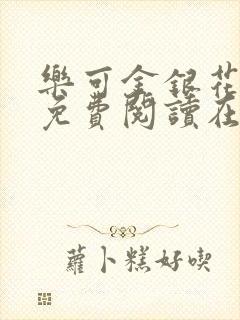 樂可金銀花
免費閱讀在
蘿卜糕好喫